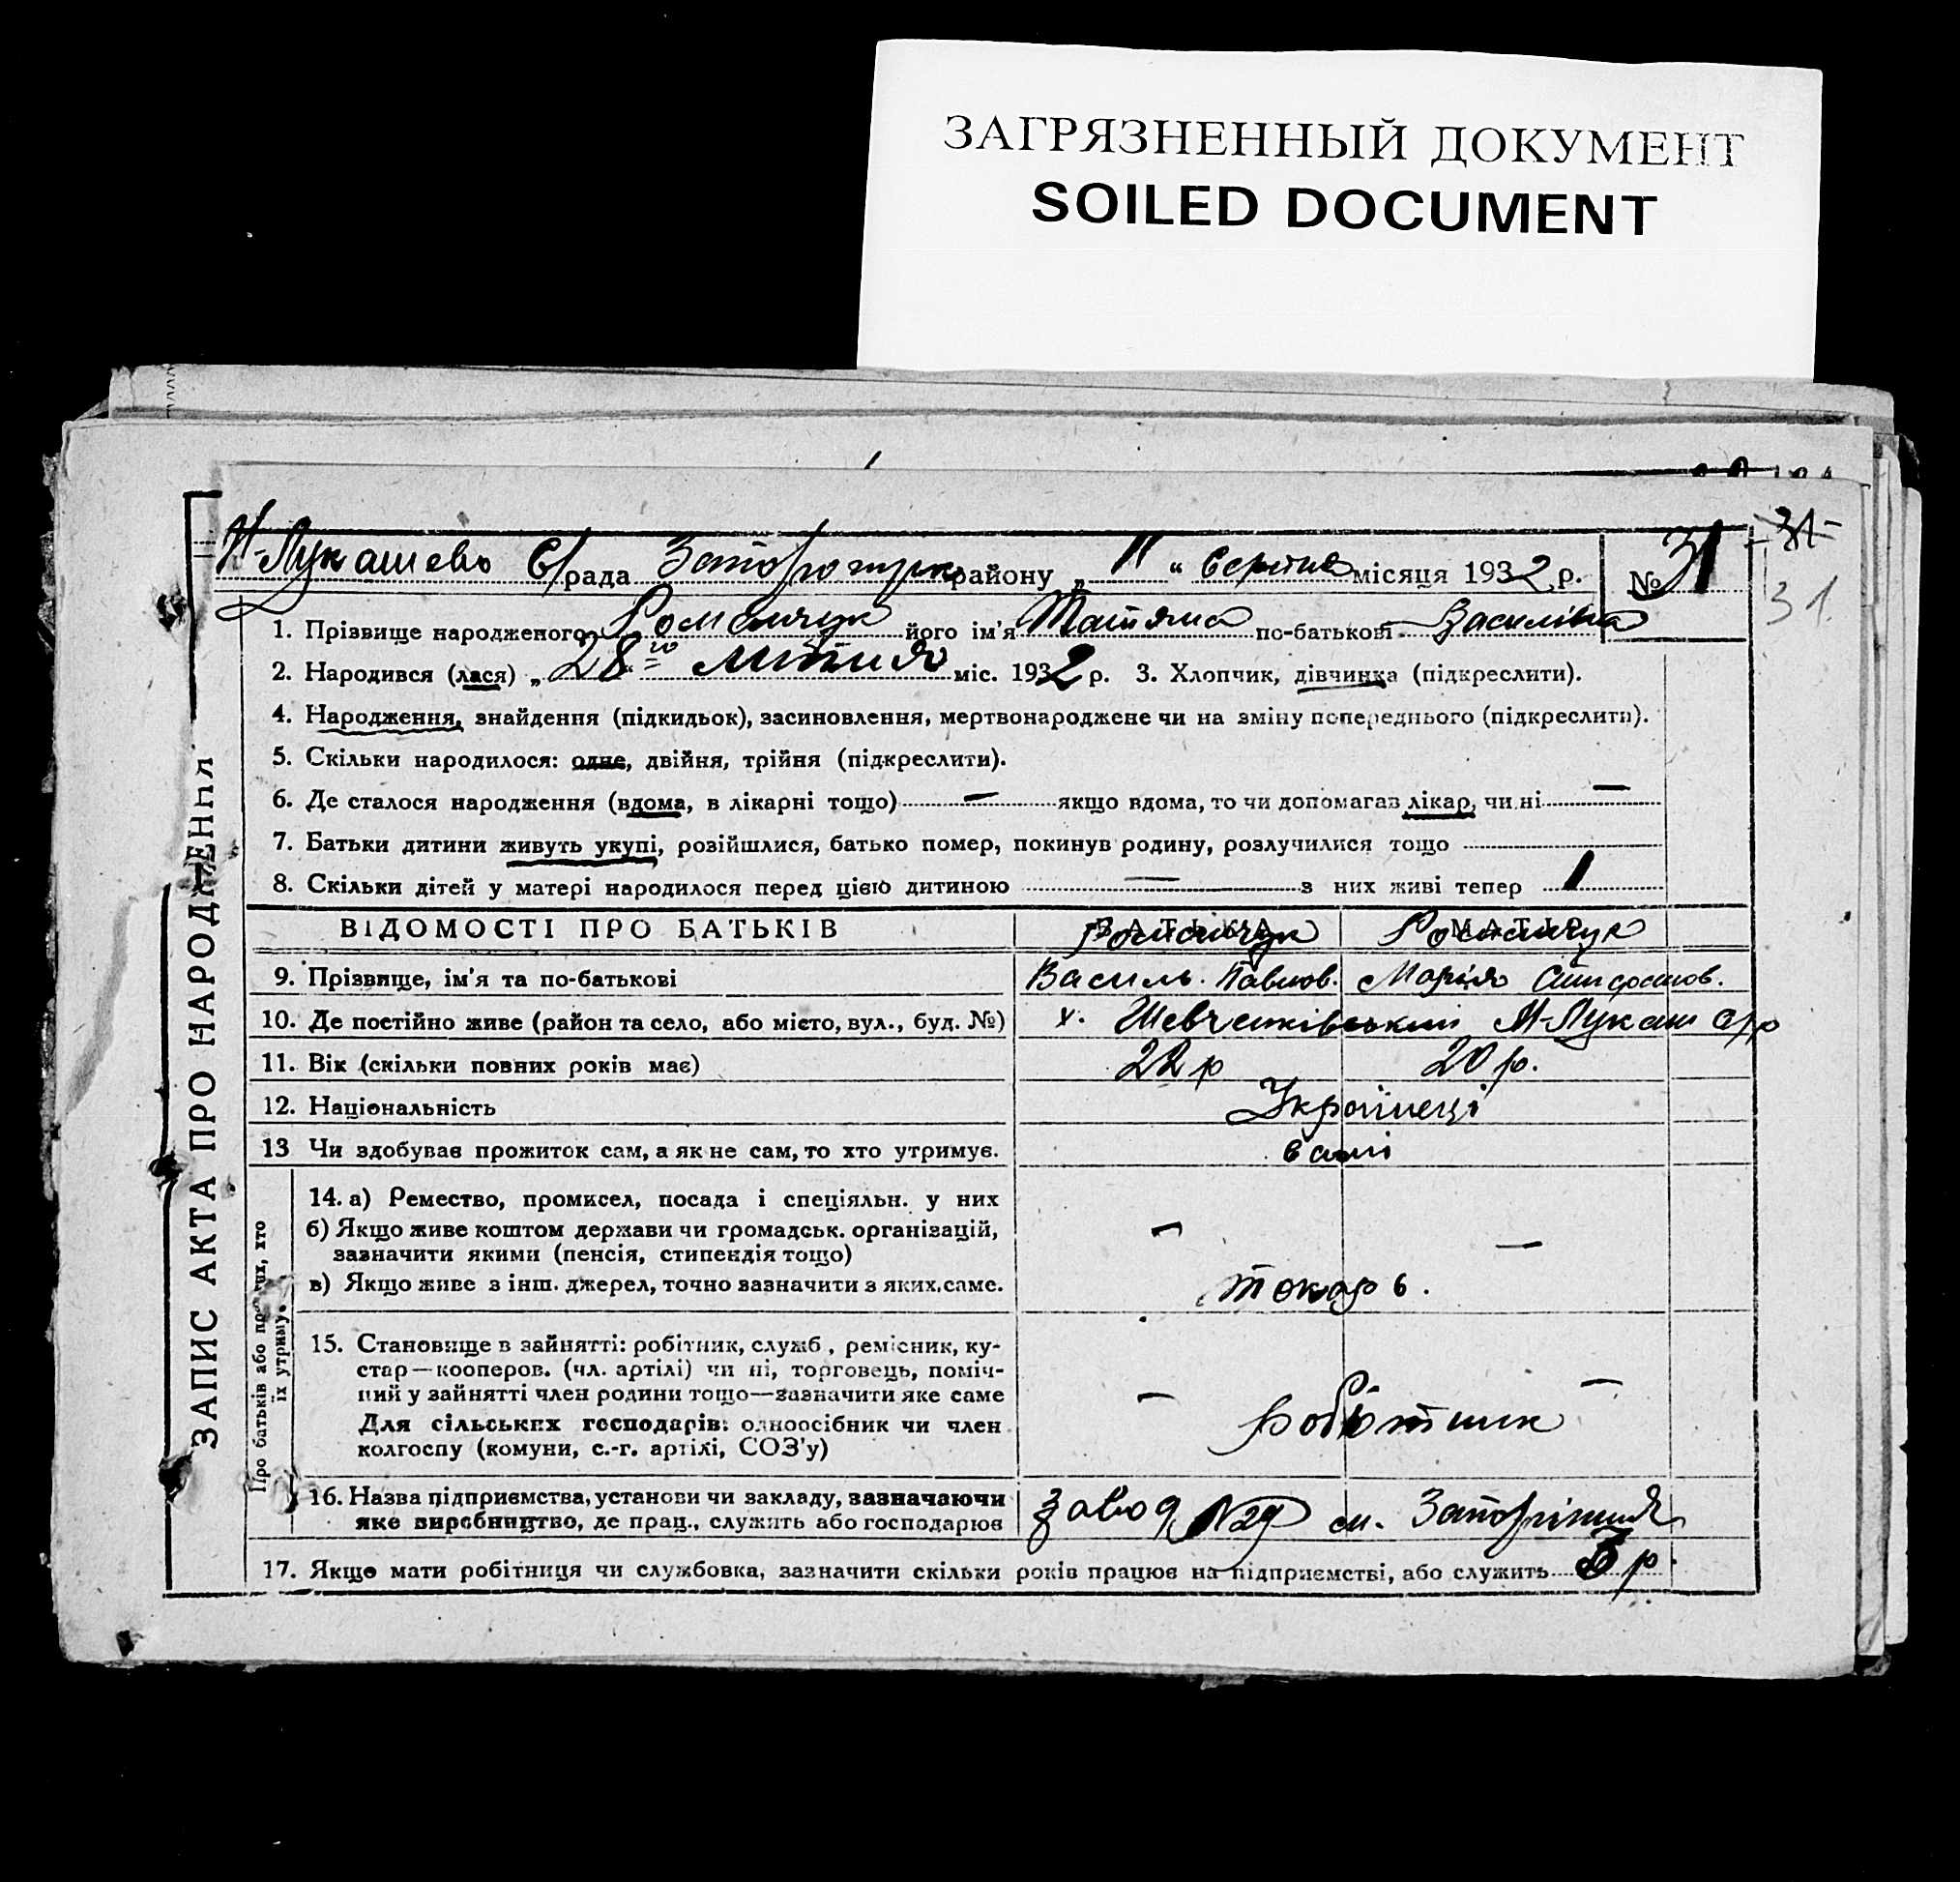 ЗАГРЯЗНЕННЫЙ ДОКУМЕНТ
SOILED DOCUMENT
Н-Лукашево С/рада район у „ 11 “ Серпня місяця 1932 р. № 31
31
31.
1. Прізвище народженого Романчук його ім'я Татяна по-батькові Василівна
2. Народився (лася) „ 28го липня міс. 1932 р. 3. Хлопчик, дівчинка (підкреслити).
4. Народження, знайдення (підкидьок), засиновлення, мертвонароджене чи на зміну попереднього (підкреслити).
5. Скільки народилося: одне, двійня, трійня (підкреслити).
6. Де сталося народження (вдома, в лікарні тощо) — якщо вдома, то чи допомагав лікар, чи ні —
7. Батьки дитини живуть укупі, розійшлися, батько помер, покинув родину, розлучилися тощо
8. Скільки дітей у матері народилося перед цією дитиною — з них живі тепер 1
ВІДОМОСТІ ПРО БАТЬКІВ БАТЬКА МАТІР
Романчук Романчук
9. Прізвище, ім'я та по-батькові Василь Павлов. Марія
10. Де постійно живе (район та село, або місто, вул., буд. №) х. Шевченківський Н-Лукаш с/р
11. Вік (скільки повних років має) 22 р 20 р.
12. Національність Українці
13 Чи здобував прожиток сам, а як не сам, то хто утримує. сами
14. а) Ремество, промисел, посада і спеціяльн. у них
б) Якщо живе коштом держави чи громадськ. організацій, — —
зазначити якими (пенсія, стипендія тощо)
в) Якщо живе з інш. джерел, точно зазначити з яких саме. токарь.
15. Становище в зайнятті: робітник, служб., ремісник, ку-
стар—кооперов. (чл. артілі) чи ні, торговець, поміч-
ний у зайнятті член родини тощо—зазначити яке саме — —
Для сільських господарів: одноосібник чи член робітник
колгоспу (комуни, с.-г. артілі, СОЗ'у)
16. Назва підприємства, установи чи закладу, зазначаючи
яке виробництво, де прац., служить або господарює завод №29 м. Запоріжжя
17. Якщо мати робітниця чи службовка, зазначити скільки років працює на підприємстві, або служить 3 р.
ЗАПИС АКТА ПРО НАРОДЖЕННЯ
Про батьків або про тих, хто
їх утримує